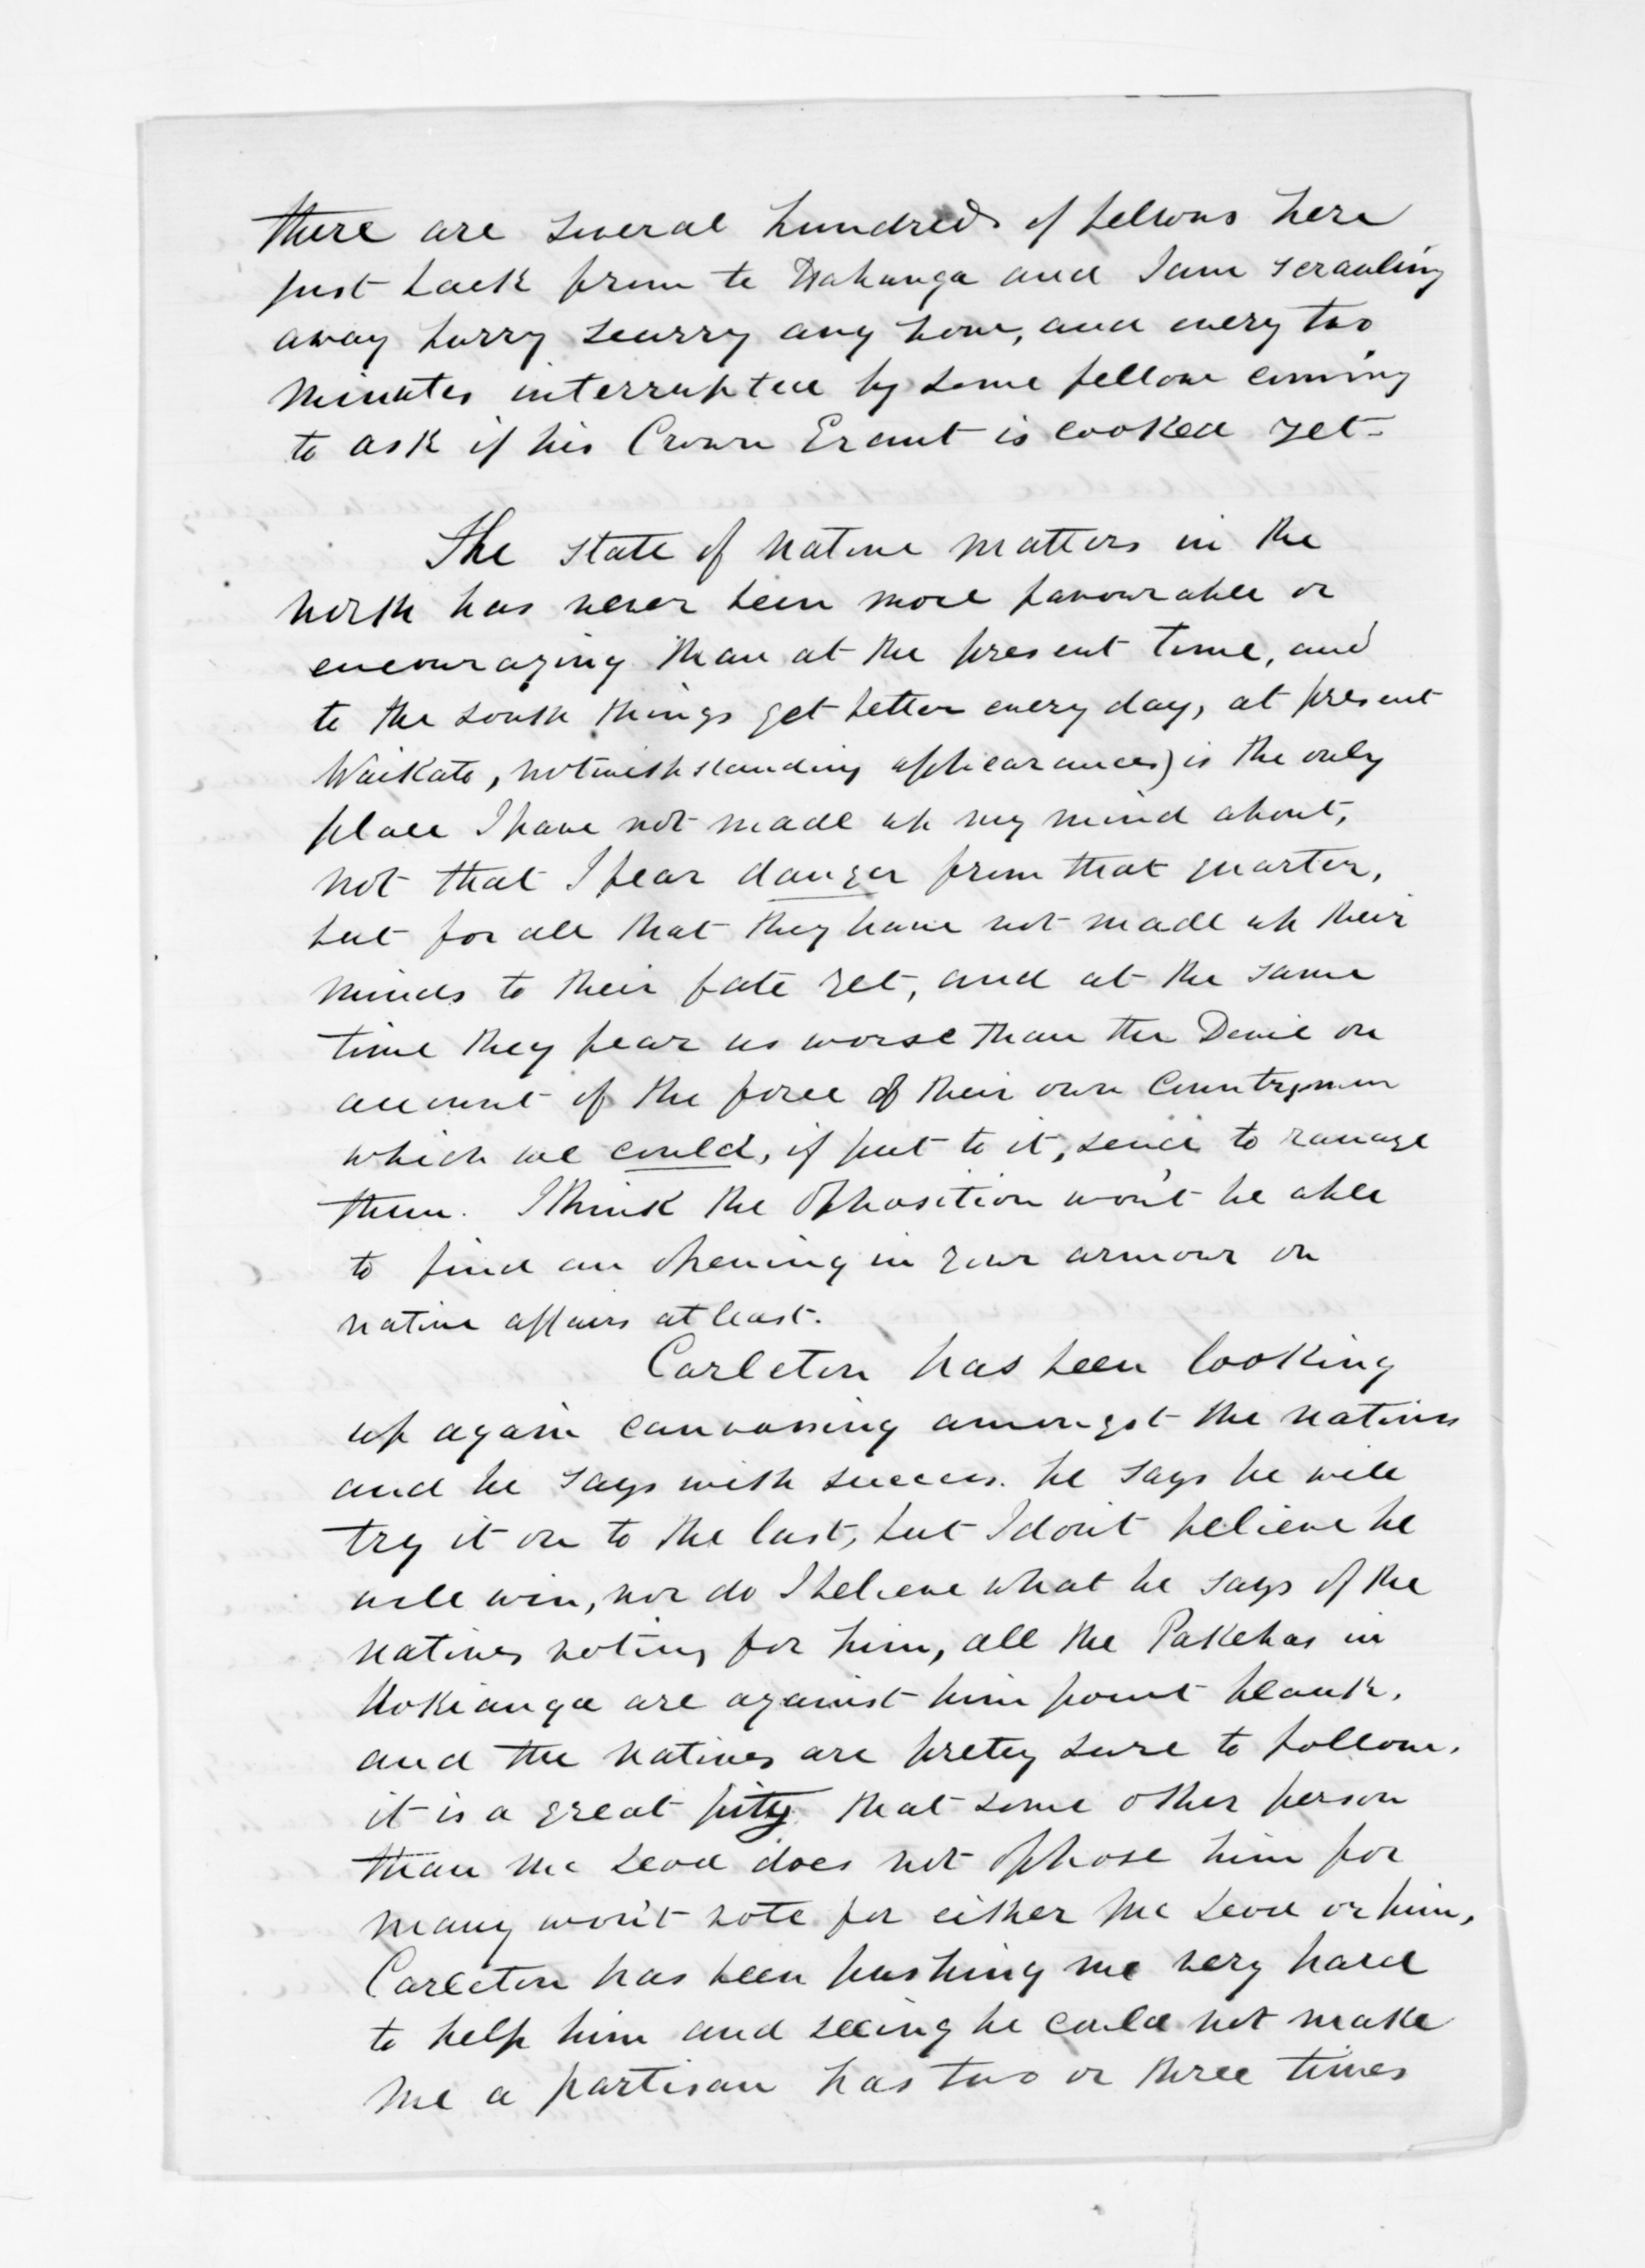 there are several hundreds of fellows here
just back from te Wahanga and I am scrauling
away hurry scurry any how, and every two
minutes interrupted by some fellow coming
to ask if his Crown Grant is cooked yet-
The state of native matters in the
north has never been more favourable or
encouraging than at the present time, and
to the south things get better every day, at present
Waikato, notwithstanding appearances) is the only
place I have not made up my mind about,
not that I fear danger from that quarter,
but for all that they have not made up their
minds to their fate yet, and at the same
time they fear us worse than the Devil on
account of the force of their own Countrymen
which we could, if put to it, send to ravage
them. I think the Opposition won't be able
to find an opening in your armour on
native affairs at least.
Carleton has been looking
up again canvassing amongst the natives
and he says with success. he says he will
try it on to the last, but I don't believe he
will win, nor do I believe what he says of the
natives voting for him, all the Pakehas in
Hokianga are against him point blank.
and the natives are pretey sure to follow.
it is a great pity that some other person
than Mc Leod does not oppose him for
many won't vote for either Mc Leod or him,
Carleton has been pushing me very hard
to help him and seeing he could not make
me a partisan has two or three times